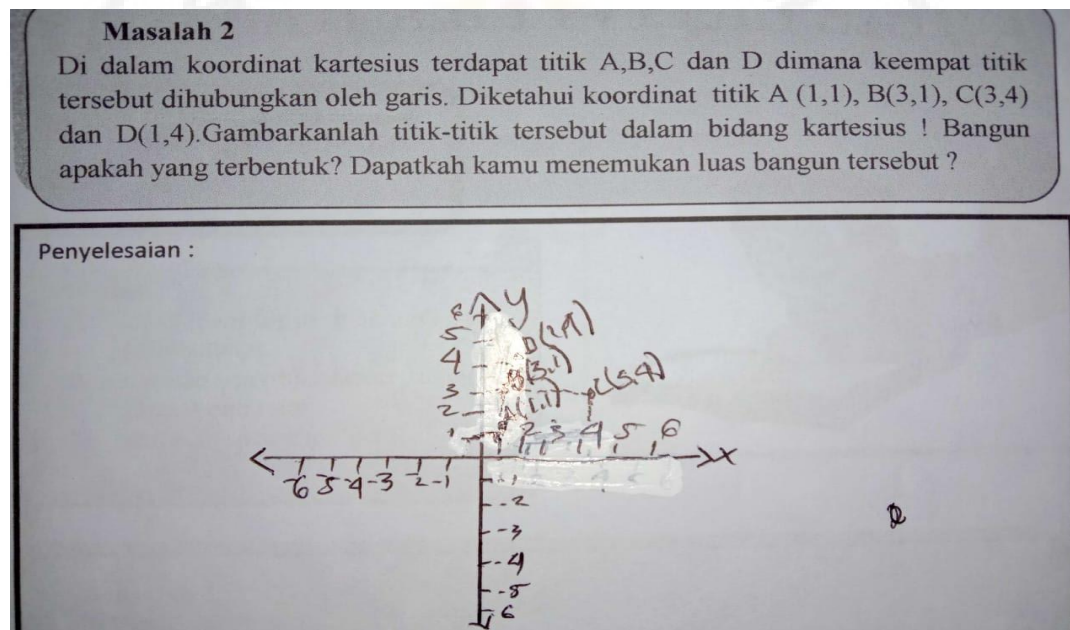 Masalah 2
Di dalam koordinat kartesius terdapat titik A,B,C dan D dimana keempat titik
tersebut dihubungkan oleh garis. Diketahui koordinat titik A (1,1), B(3,1), C(3,4)
dan D(1,4).Gambarkanlah titik-titik tersebut dalam bidang kartesius ! Bangun
apakah yang terbentuk? Dapatkah kamu menemukan luas bangun tersebut ?
Penyelesaian :
y
6
5
4 B(3,1)
3
2 A(1,1)
1 2 3 4 5 6
-6 -5 -4 -3 -2 -1 x
-2
-3
-4
-5
6